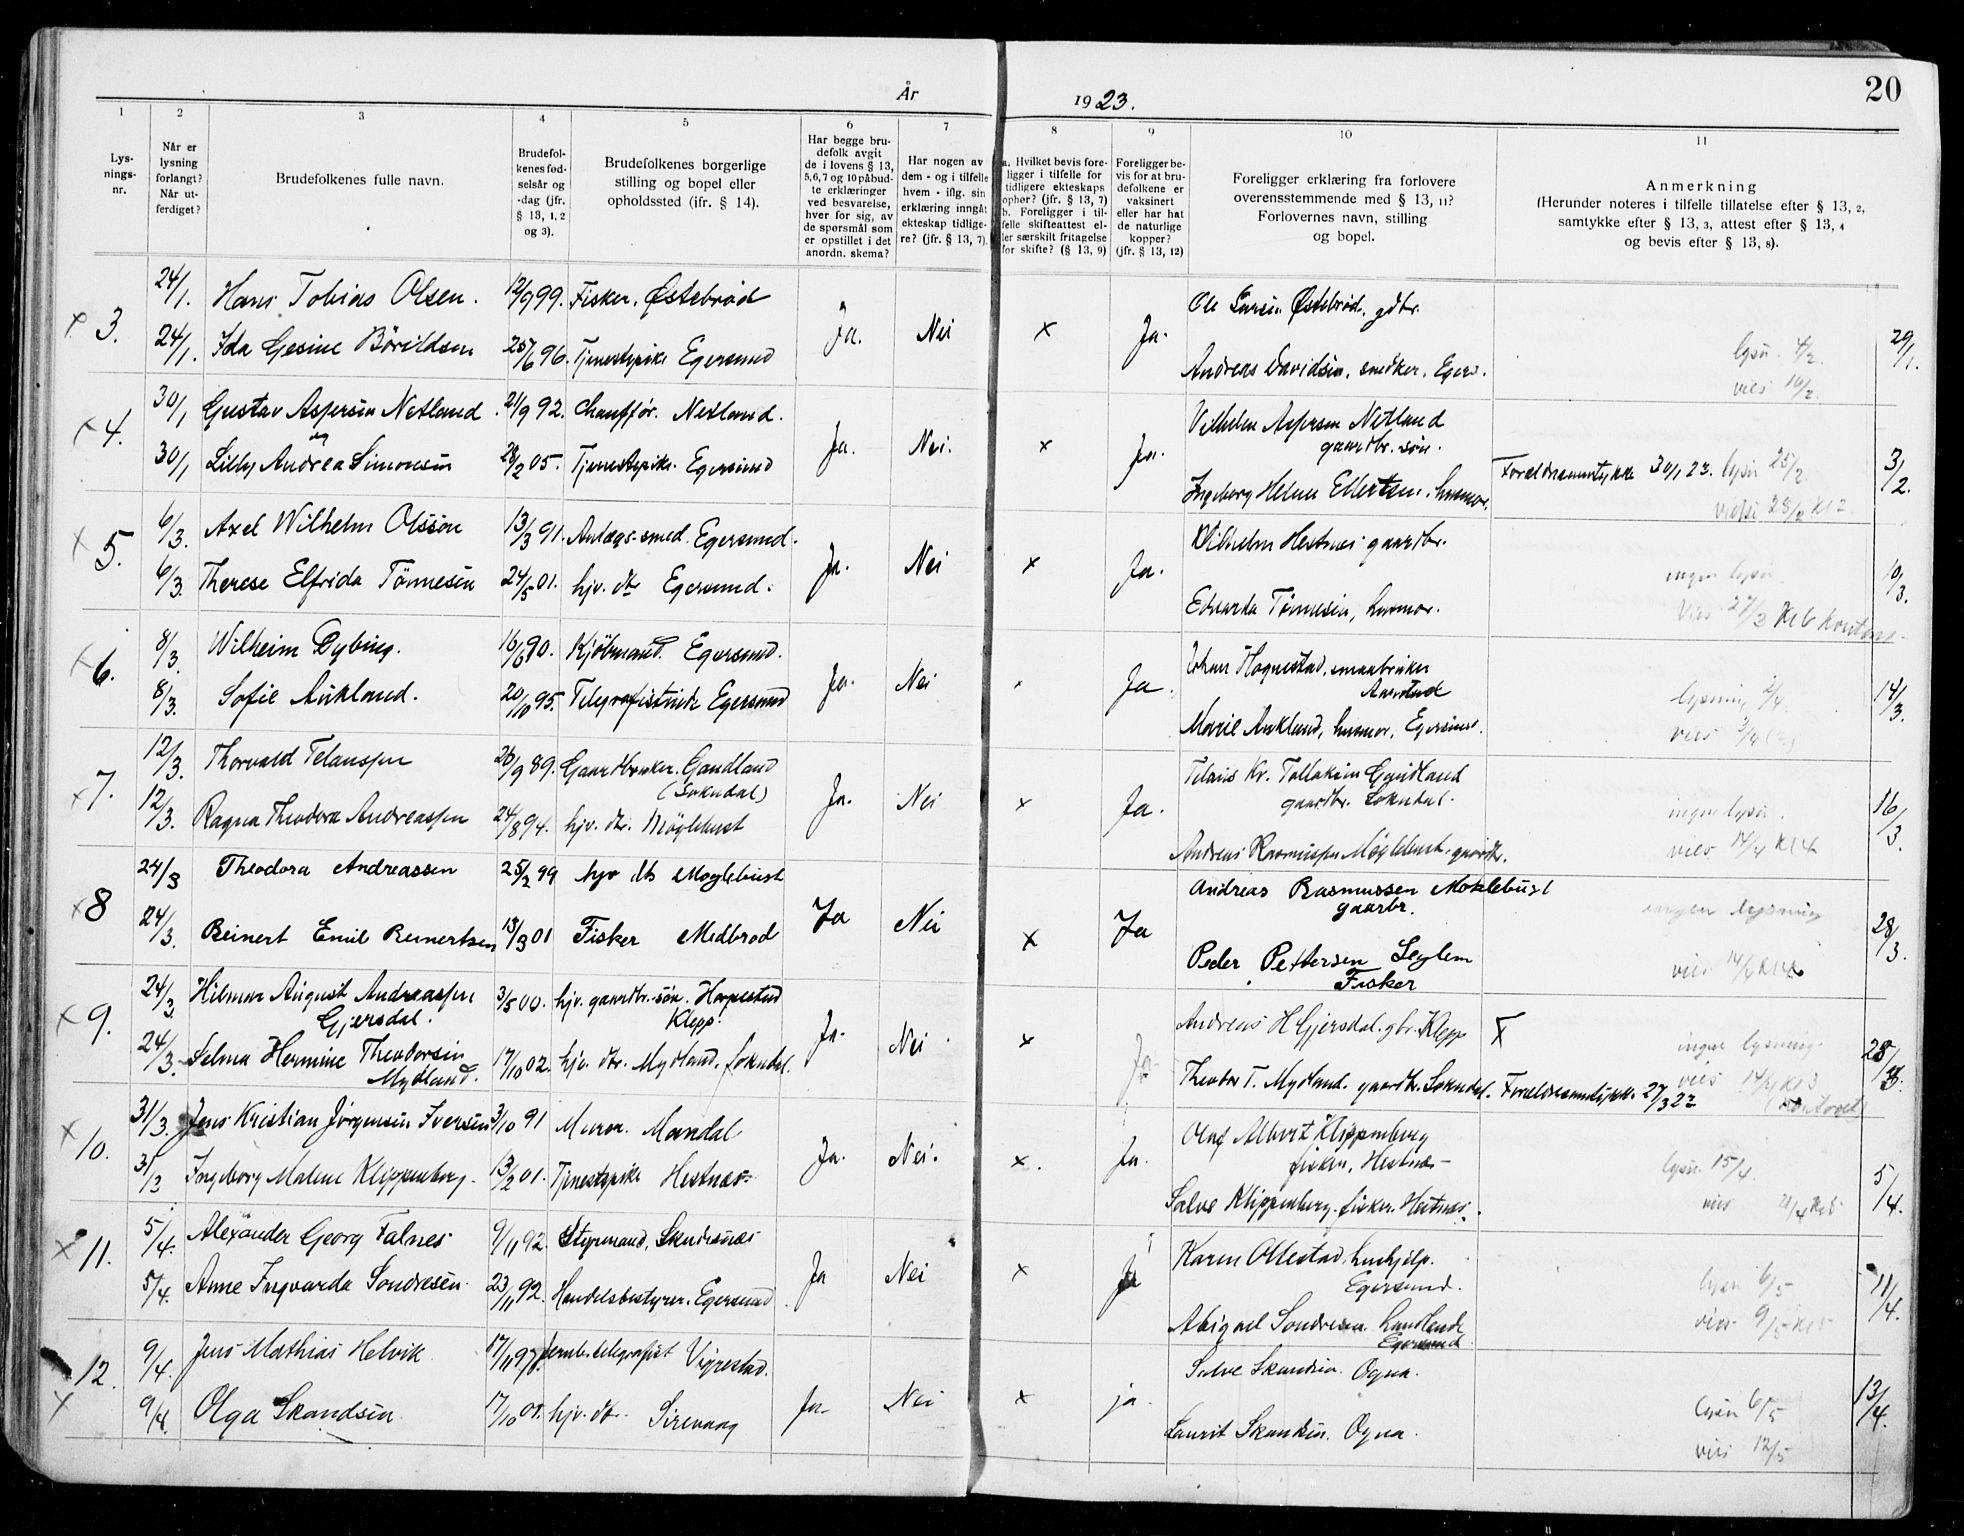 År 1923.
20
1 2 3 4 5 6 7 8 9 10 11
Lysningsnr.
Når er lysning forlangt? Når utferdiget?
Brudefolkenes fulle navn.
Brudefolkenes fødselsår og -dag (jfr. § 13, 1, 2 og 3).
Brudefolkenes borgerlige stilling og bopel eller opholdssted (ifr. § 14).
Har begge brudefolk avgit de i lovens § 13, 5, 6, 7 og 10 påbudte erklæringer ved besvarelse, hver for sig, av de spørsmål som er opstillet i det anordn. skema?
Har nogen av dem - og i tilfelle hvem - iflg. sin erklæring inngåt ekteskap tidligere? (jfr. § 13, 7).
a. Hvilket bevis foreligger i tilfelle for tidligere ekteskaps ophør? (jfr. § 13, 7) b. Foreligger i tilfelle skifteattest eller særskilt fritagelse for skifte? (§ 13, 9)
Foreligger bevis for at brudefolkene er vaksinert eller har hat de naturlige kopper? (jfr. § 13, 12)
Foreligger erklæring fra forlovere overensstemmende med § 13, 11? Forlovernes navn, stilling og bopel.
Anmerkning (Herunder noteres i tilfelle tillatelse efter § 13, 2, samtykke efter § 13, 3, attest efter § 13, 4 og bevis efter § 13, 8).
x 3. 24/1. Hans Tobias Olsen. 12/9 99. Fisker, Østebrød Ja. Nei x Ja. Ole Larsen Østebrød, gdbr. lysn. 4/2. 29/1.
24/1. Ida Gesine Børildsen 25/6 96. Tjenestepike Egersund Andreas Davidsen, snedker, Egers. vies 10/2.
x 4. 30/1 Gustav Aspersen Netland. 21/9 92. Chauffør. Netland. Ja. Nei. x Ja. Vilhelm Aspersen Netland
gaardbr. søn.
30/1 Lilly Andrea Simonsen 28/2 05. Tjenestepike. Egersund Ingeborg Helene Ellertsen, husmor. Forældresamtykke 30/1 23. lysn 25/2. 3/2.
vies 28/2 kl 2.
x 5. 6/3. Axel Wilhelm Olsson 13/3 91. Anlægs-smed. Egersund. Ja. Nei x Ja. Wilhelm Hestnes gaardbr. ingen lysn. 10/3.
6/3. Therese Elfrida Tønnesen 24/5 01. hjv. dtr Egersund. Edvarda Tønnesen, husmor. Vies 27/3 Kl 6 kontoret
x 6. 8/3. Wilhelm Dybing. 16/6 90. Kjøbmand. Egersund. Ja. Nei Ja. Johan Hognestad, smaabruker
Aarstad lysning 2/4. 14/3.
8/3. Sofie Aukland. 20/10 95. Telegrafistinde Egersund Marie Aukland, husmor, Egersund. vies 3/4
x 7. 12/3. Thorvald Telaussen 26/9 89. Gaardbruker. Gandland
(Sokndal) Ja. Nei x Ja. Telaus Kr. Tollaksen Gundland
gaardbr. Sokndal. ingen lysn. 16/3.
12/3. Ragna Theodora Andreassen 24/8 94. hjv. dtr. Møglebust Andreas Rasmussen Møglebust. gaardbr. vies 14/4 Kl 4
x 8 24/3 Theodora Andreassen 25/2 99 hjv dtr Møglebust Ja Nei x Ja Andreas Rasmussen Moklebust
gaarbr. ingen lysning 28/3.
24/3. Reinert Emil Reinertsen 13/3 01 Fisker Medbrød Peder Pettersen Seglem
Fisker vies 14/4 Kl 4
x 9. 24/3. Hilmar August Andreassen
Gjersdal. 3/5 00. hjv. gaardbr. søn. Horpestad
Klepp. Ja. Nei. x Ja Andreas H Gjersdal. gbr. Klepp x ingen lysning. 28/3.
24/3. Selma Hermine Theodorsen
Mydland. 17/10 02. hjv. dtr. Mydland, Sokndal. Theodor T. Mydland. gaardbr. Sokndal. Forældresamtykke 27/3 23 vies 14/4 Kl 3
(Kontoret)
x 10. 31/3. Jens Kristian Jørgensen Iversen 3/10 91 Murer. Mandal Ja. Nei. x. Ja. Olaf Albert Klippenberg
fisker, Hestnes- lysn. 15/4. 5/4.
31/3 Ingeborg Malene Klippenberg. 13/2 01. Tjenestepike Hestnes- Salve Klippenberg. fisker. Hestnes. vies 21/4 Kl 5
x 11. 5/4. Alexander Georg Falnes 9/11 92. Styrmand, Skudesnes Ja Nei x Ja Karen Ollestad, hushjelp.
Egersund. lysn 6/5 11/4.
5/4. Anne Ingvarda Sondresen. 23/11 92. Handelsbestyrer. Egersund. Abigael Sondresen. handlende
Egersund. vies 9/5 Kl 5
x 12. 9/4. Jens Mathias Helvik 17/11 97. Jernb.telegrafist Vigrestad. Ja- Nei x ja. Salve Skandsen. Ogna. lysn 6/5 13/4.
9/4. Olga Skandsen. 17/10 01. hjv. dtr. Sirevaag Laurit Skandsen. Ogna. vies 12/5